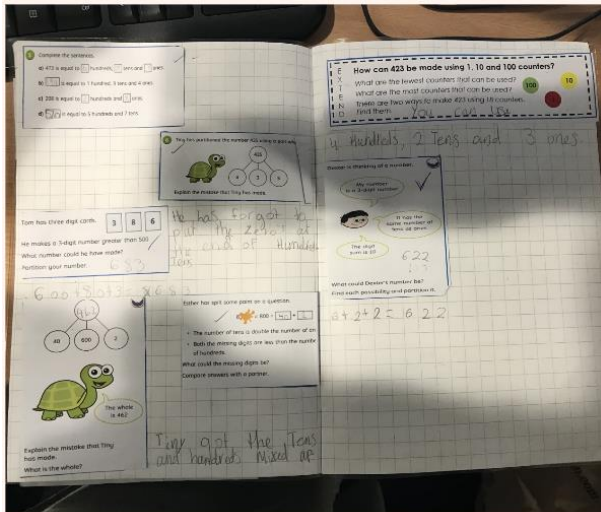 Complete the sentences.
a) 472 is equal to hundreds, tens and ones.
b) is equal to 1 hundred, tens and 4 ones.
hundreds and ones.
is equal to 5 hundreds and 7 tens.
Tiny has partitioned the number 423 using a part-whole
423
4
2
3
Explain the mistake that Tiny has made.
He has forgot to
put the zero at
the end of Hundreds
Tens
Tom has three digit cards.
3 8 6
He makes a 3-digit number greater than 500
What number could he have made?
Partition your number.
683
462
40
600
2
The whole
is 462
Explain the mistake that Tiny
has made.
What is the whole?
Esther has spilt some paint on a question.
= 600 +
The number of tens is double the number of on
Both the missing digits are less than the numbe
of hundreds.
What could the missing digits be?
Compare answers with a partner.
Tiny got the Tens
and hundreds Mixed up
EXTEND
How can 423 be made using 1, 10 and 100 counters?
What are the fewest counters that can be used?
What are the most counters that can be used?
There are two ways to make 423 using 18 counters.
Find them.
You can use
100
10
4 Hundreds, 2 Tens and 3 ones
Dexter is thinking of a number.
My number
is a 3-digit number
It has the
same number of
tens as ones
The digit
sum is 10
622
What could Dexter's number be?
Find each possibility and partition it.
6+2+2=10 622